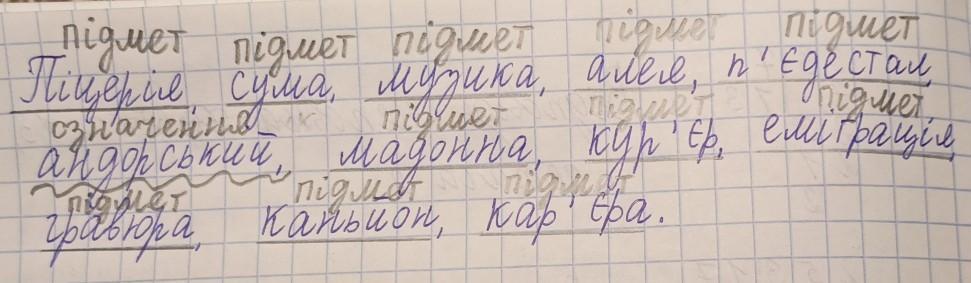 підмет підмет підмет підмет підмет
Піцерія, сума, музика, алея, п'єдестал,
означення підмет підмет підмет
андорський, мадонна, кур'єр, еміграція,
підмет підмет підмет
гравюра, каньйон, кар'єра.